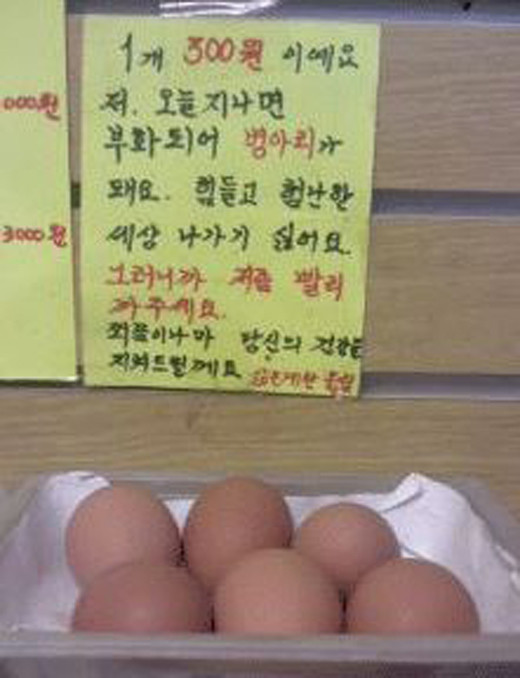 000원
3000원
1개 300원 이예요
저. 오늘 지나면
부화되어 병아리가
돼요. 힘들고 험난한
세상 나가기 싫어요.
그러니까 저를 빨리
까주세요.
쬐끔이나마 당신의 건강을
지켜드릴께요